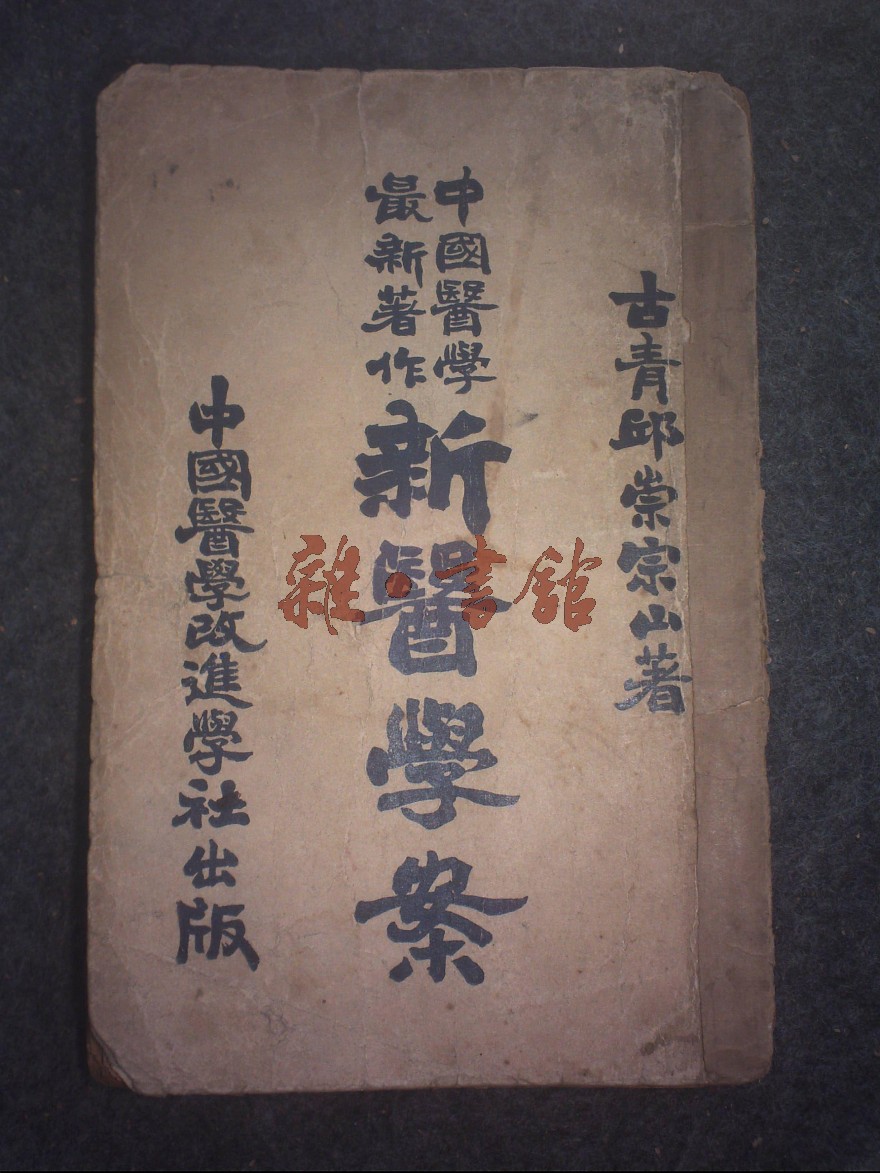 古青邱崇宗山著
中國醫學
最新著作
新醫學案
中國醫學改進學社出版
雜·書館